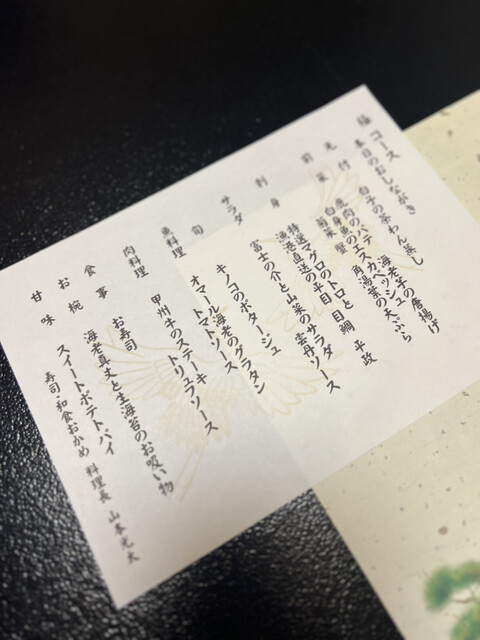 コース
本日のおしながき
先付 白子の茶わん蒸し
前菜 鹿肉のパテ 海老芋の唐揚げ
白身魚のエスカベッシュ
刺身 特選マグロのトロと目鯛 平政
漁港直送の平目
サラダ 富士の介と山菜のサラダ
旬 キノコのポタージュ
魚料理 オマール海老のグラタン
オートマトソース
肉料理 甲州牛のステーキ
トリュフソース
食事 お寿司
お椀 海老真丈と生海苔のお吸い物
甘味 スイートポテトパイ
寿司・和食おかめ 料理長 山本光太